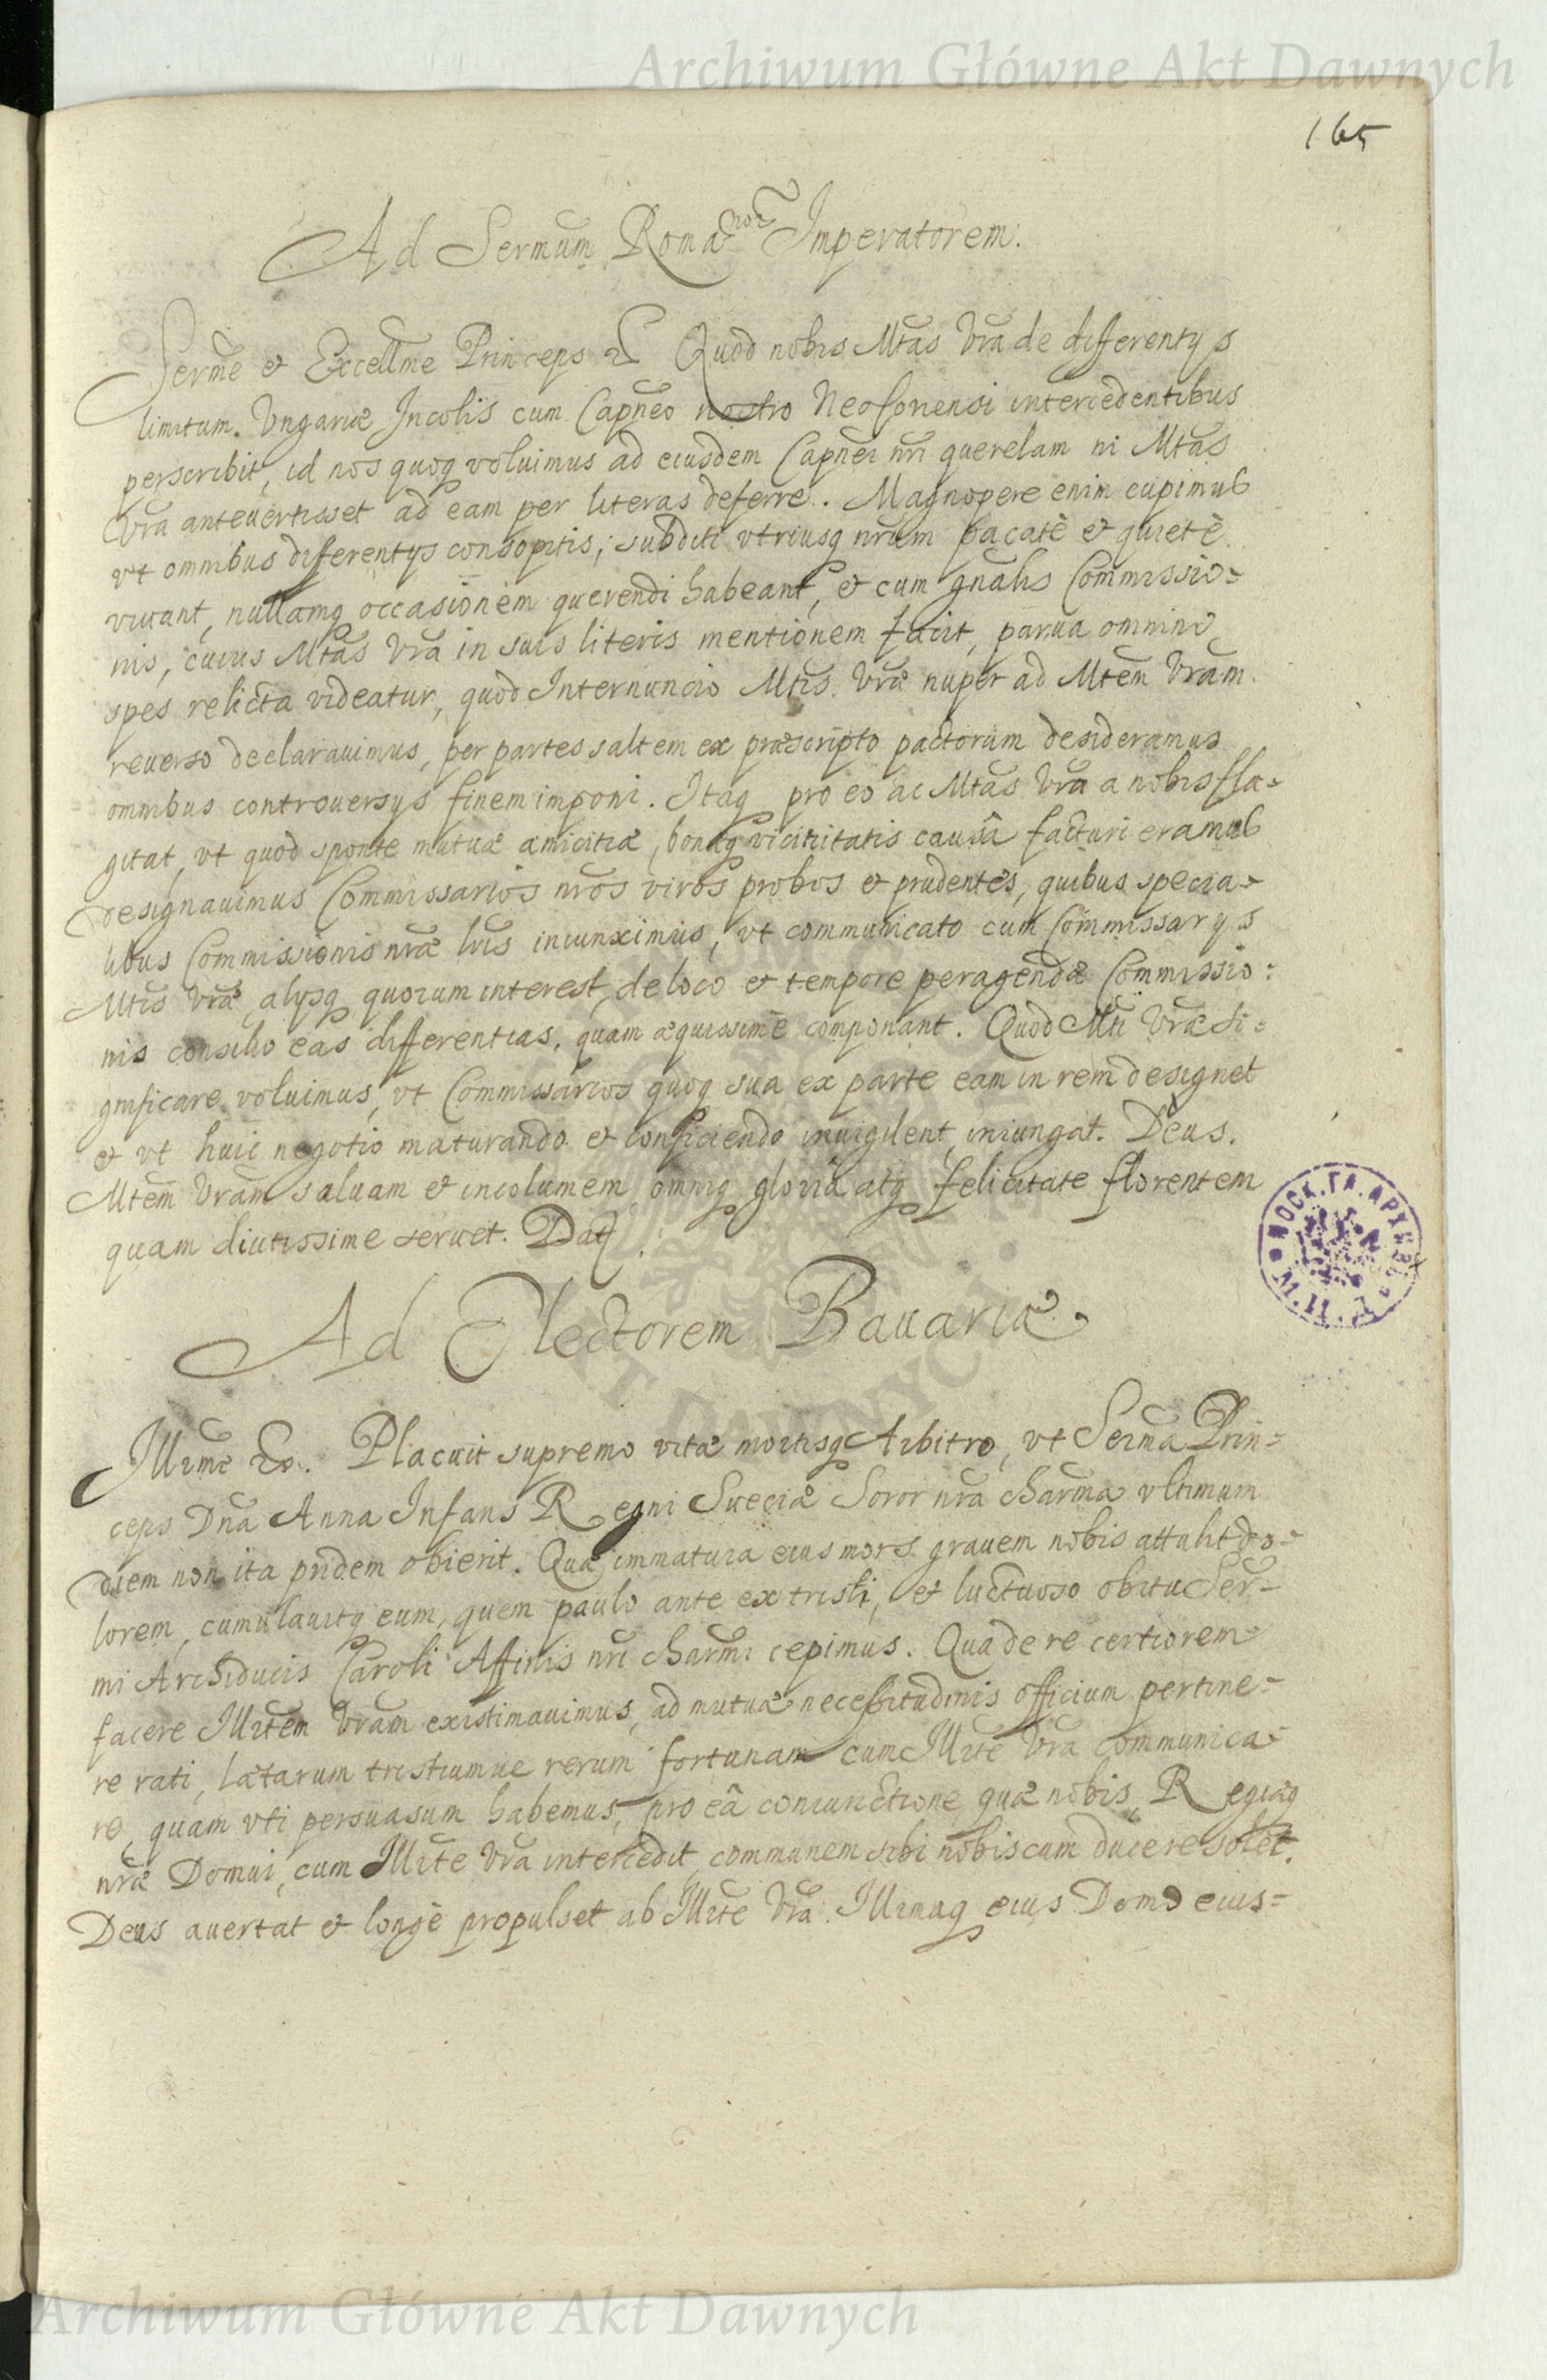 Archiwum Główne Akt Dawnych
165
Ad Sermum Romanor Imperatorem.
Serme et Excellme Princeps Quod nobis Mtas Vra de differentys
limitum Vngariæ Incolis cum Capneo nostro Neoforiensi intercedentibus
perscribit, id nos quoq voluimus ad eiusdem Capnei nri querelam ni Mtas
Vra antevertisset ad eam per literas deferre. Magnopere enim cupimus
vt omnibus differentys consopitis, subditi vtriusq nrum pacatè et quietè
viuant, nullamq occasionem querendi habeant, et cum gnalis Commissio-
nis, cuius Mtas Vra in suis literis mentionem facit, parua omninò
spes relicta videatur, quod Internuncio Mtis Vræ nuper ad Mtem Vram
reuerso declarauimus, per partes saltem ex præscripto pactorum desideramus
omnibus controuersys finem imponi. Itaq pro eo ac Mtas Vra a nobis fla-
gitat, vt quod sponte mutuæ amicitiæ, bonæq vicinitatis causâ facturi eramus
designauimus Commissarios nros viros probos et prudentes, quibus specia-
libus Commissionis nræ lris iniunximus, vt communicato cum Commissarys
Mtis Vræ, alysq quorum interest, de loco et tempore peragendæ Commissio:
nis consilio eas differentias, quam æquissimè componant. Quod Mti Vræ si-
gnificare voluimus, vt Commissarios quoq sua ex parte eam in rem designet
et vt huic negotio maturando et conficiendo inuigilent iniungat. Deus.
Mtem Vram saluam et incolumem omniq gloriâ atq felicitate florentem
quam diutissime seruet. Dat
Ad Electorem Bauariæ
Illme &. Placuit supremo vitæ mortisq Arbitro, vt Serma Prin-
ceps Dna Anna Infans Regni Sueciæ Soror nra charma vltimum
diem non ita pridem obierit. Quæ immatura eius mors grauem nobis attulit do-
lorem, cumulauitq eum, quem paulo ante ex tristi, et luctuoso obitu Ser-
mi Archiducis Caroli Affinis nri charmi cepimus. Qua de re certiorem
facere Illtem Vram existimauimus, ad mutuæ necessitudinis officium pertine-
re rati, lætarum tristiumue rerum fortunam cum Illte Vra communica-
re, quam vti persuasum habemus, pro eâ coniunctione quæ nobis, Regiæq
nræ Domui, cum Illte Vra intercedit, communem sibi nobiscum ducere solet.
Deus auertat et longè propulset ab Illte Vra Illmaq eius Domo eius-
Archiwum Główne Akt Dawnych